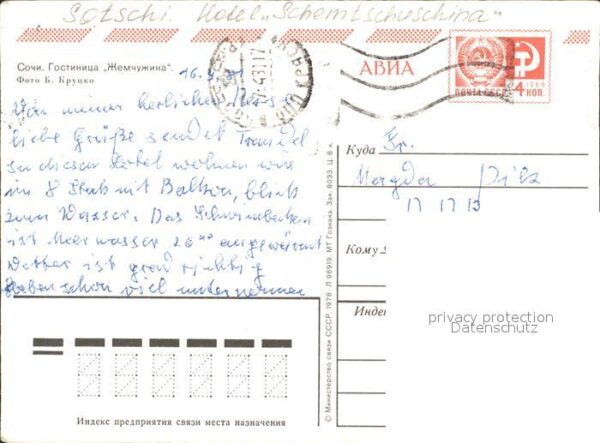 Sotschi. Hotel „Schemtschuschina“
Сочи. Гостиница „Жемчужина“.
Фото Б. Круцко
АВИА
ПОЧТА СССР
1966
4 КОП.
16.4.
Von meiner herlichen Reise
liebe Grüße sendet Traudel
In diesen Hotel wohnen wir
im 8 Stock mit Balkon, blick
zum Wasser. Das Schwimmbecken
ist Meerwasser 26 angewärmt
Wetter ist grad richtig
Haben schon viel unternommen
Куда Fr.
Magda Pilz
Кому
Индекс
privacy protection
Datenschutz
© Министерство связи СССР, 1978 Л 96919. МТ Гознака. Зак. 8033. Ц. 8 к.
Индекс предприятия связи места назначения